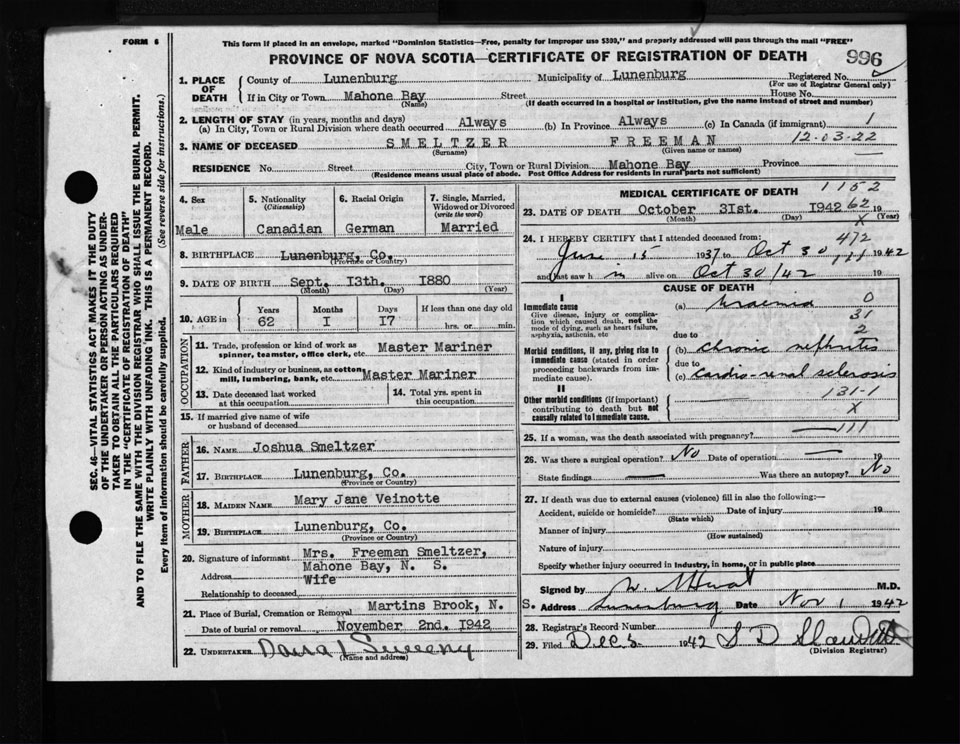 FORM 6
This form if placed in an envelope, marked "Dominion Statistics—Free, penalty for improper use $300," and properly addressed will pass through the mail "FREE"
PROVINCE OF NOVA SCOTIA—CERTIFICATE OF REGISTRATION OF DEATH
996
1. PLACE OF DEATH County of Lunenburg Municipality of Lunenburg Registered No.
(For use of Registrar General only)
If in City or Town Mahone Bay Street House No.
(Name) (If death occurred in a hospital or institution, give the name instead of street and number)
2. LENGTH OF STAY (in years, months and days)
(a) In City, Town or Rural Division where death occurred Always (b) In Province Always (c) In Canada (if immigrant) 1
12-03-22
3. NAME OF DECEASED SMELTZER FREEMAN
(Surname) (Given name or names)
RESIDENCE No. Street City, Town or Rural Division Mahone Bay Province
(Residence means usual place of abode. Post Office Address for residents in rural parts not sufficient)
4. Sex
Male
5. Nationality
(Citizenship)
Canadian
6. Racial Origin
German
7. Single, Married, Widowed or Divorced
(write the word)
Married
8. BIRTHPLACE Lunenburg, Co.
(Province or Country)
9. DATE OF BIRTH Sept. 13th. 1880
(Month) (Day) (Year)
10. AGE in Years Months Days If less than one day old
62 I I7 hrs. or min.
OCCUPATION
11. Trade, profession or kind of work as spinner, teamster, office clerk, etc. Master Mariner
12. Kind of industry or business, as cotton mill, lumbering, bank, etc. Master Mariner
13. Date deceased last worked at this occupation
14. Total yrs. spent in this occupation
15. If married give name of wife or husband of deceased
FATHER
16. NAME Joshua Smeltzer
17. BIRTHPLACE Lunenburg, Co.
(Province or Country)
MOTHER
18. MAIDEN NAME Mary Jane Veinotte
19. BIRTHPLACE Lunenburg, Co.
(Province or Country)
20. Signature of informant Mrs. Freeman Smeltzer,
Address Mahone Bay, N. S.
Relationship to deceased Wife
21. Place of Burial, Cremation or Removal Martins Brook, N. S.
Date of burial or removal November 2nd. I942
22. UNDERTAKER
(Name and address)
MEDICAL CERTIFICATE OF DEATH
1152
23. DATE OF DEATH October 3Ist. 1942 62 19
(Month) (Day) (Year)
X
24. I HEREBY CERTIFY that I attended deceased from:
June 15 1937 to Oct 30 1942
and last saw h im alive on Oct 30/42 19
CAUSE OF DEATH
I
Immediate cause
Give disease, injury or complication which caused death, not the mode of dying, such as heart failure, asphyxia, asthenia, etc
(a) Uraemia
0
31
2
due to
Morbid conditions, if any, giving rise to immediate cause (stated in order proceeding backwards from immediate cause).
(b) Chronic nephritis
due to
(c) Cardio-renal sclerosis
II
Other morbid conditions (if important) contributing to death but not causally related to immediate cause.
131-1
X
111
25. If a woman, was the death associated with pregnancy?
26. Was there a surgical operation? No Date of operation 19
State findings Was there an autopsy? No
27. If death was due to external causes (violence) fill in also the following:—
Accident, suicide or homicide? Date of injury 19
(State which)
Manner of injury
(How sustained)
Nature of injury
Specify whether injury occurred in industry, in home, or in public place
Signed by M.D.
Address Lunenburg Date Nov 1 1942
28. Registrar's Record Number
29. Filed Dec 3 1942
(Division Registrar)
SEC. 46—VITAL STATISTICS ACT MAKES IT THE DUTY
OF THE UNDERTAKER OR PERSON ACTING AS UNDER-
TAKER TO OBTAIN ALL THE PARTICULARS REQUIRED
IN THE "CERTIFICATE OF REGISTRATION OF DEATH"
AND TO FILE THE SAME WITH THE DIVISION REGISTRAR WHO SHALL ISSUE THE BURIAL PERMIT.
WRITE PLAINLY WITH UNFADING INK. THIS IS A PERMANENT RECORD.
Every item of information should be carefully supplied. (See reverse side for instructions.)